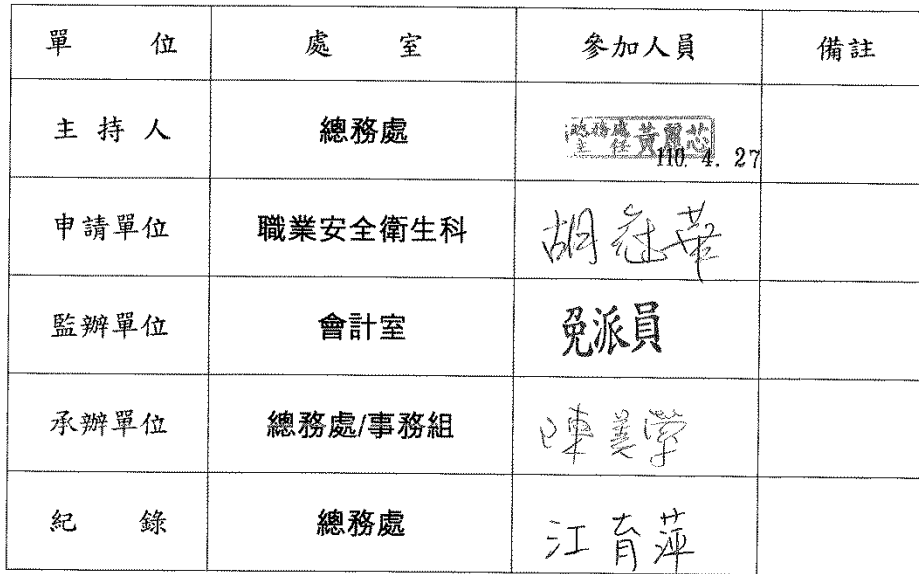 單 位 處 室 參加人員 備註
主 持 人 總務處 總務處主任 黃麗芯 110. 4. 27
申請單位 職業安全衛生科 胡冠華
監辦單位 會計室 免派員
承辦單位 總務處/事務組 陳美
紀 錄 總務處 江育萍